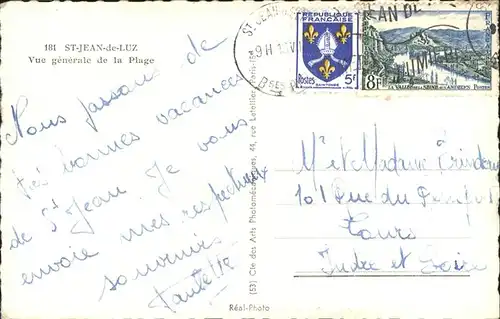 181 ST-JEAN-de-LUZ
Vue générale de la Plage
Nous passons de
très bonnes vacances
de St Jean Je vous
envoie mes respectueux
souvenirs
(53) Cie des Arts Photomécaniques, 44, rue Letellier
Réal-Photo
RÉPUBLIQUE
FRANÇAISE
Postes 5F
8F
LA VALLÉE DE LA SEINE AUX ANDELYS POSTES
ST JEAN
9H
Mr et Madame
101 Rue du
Tours
Indre et Loire